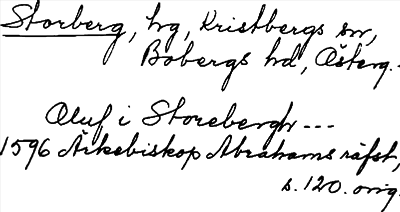 Storberg, hg, Kristbergs sn,
Bobergs hd, Österg.
Oluf i Storebergh ---
1596 Ärkebiskop Abrahams räfst,
s. 120. orig.